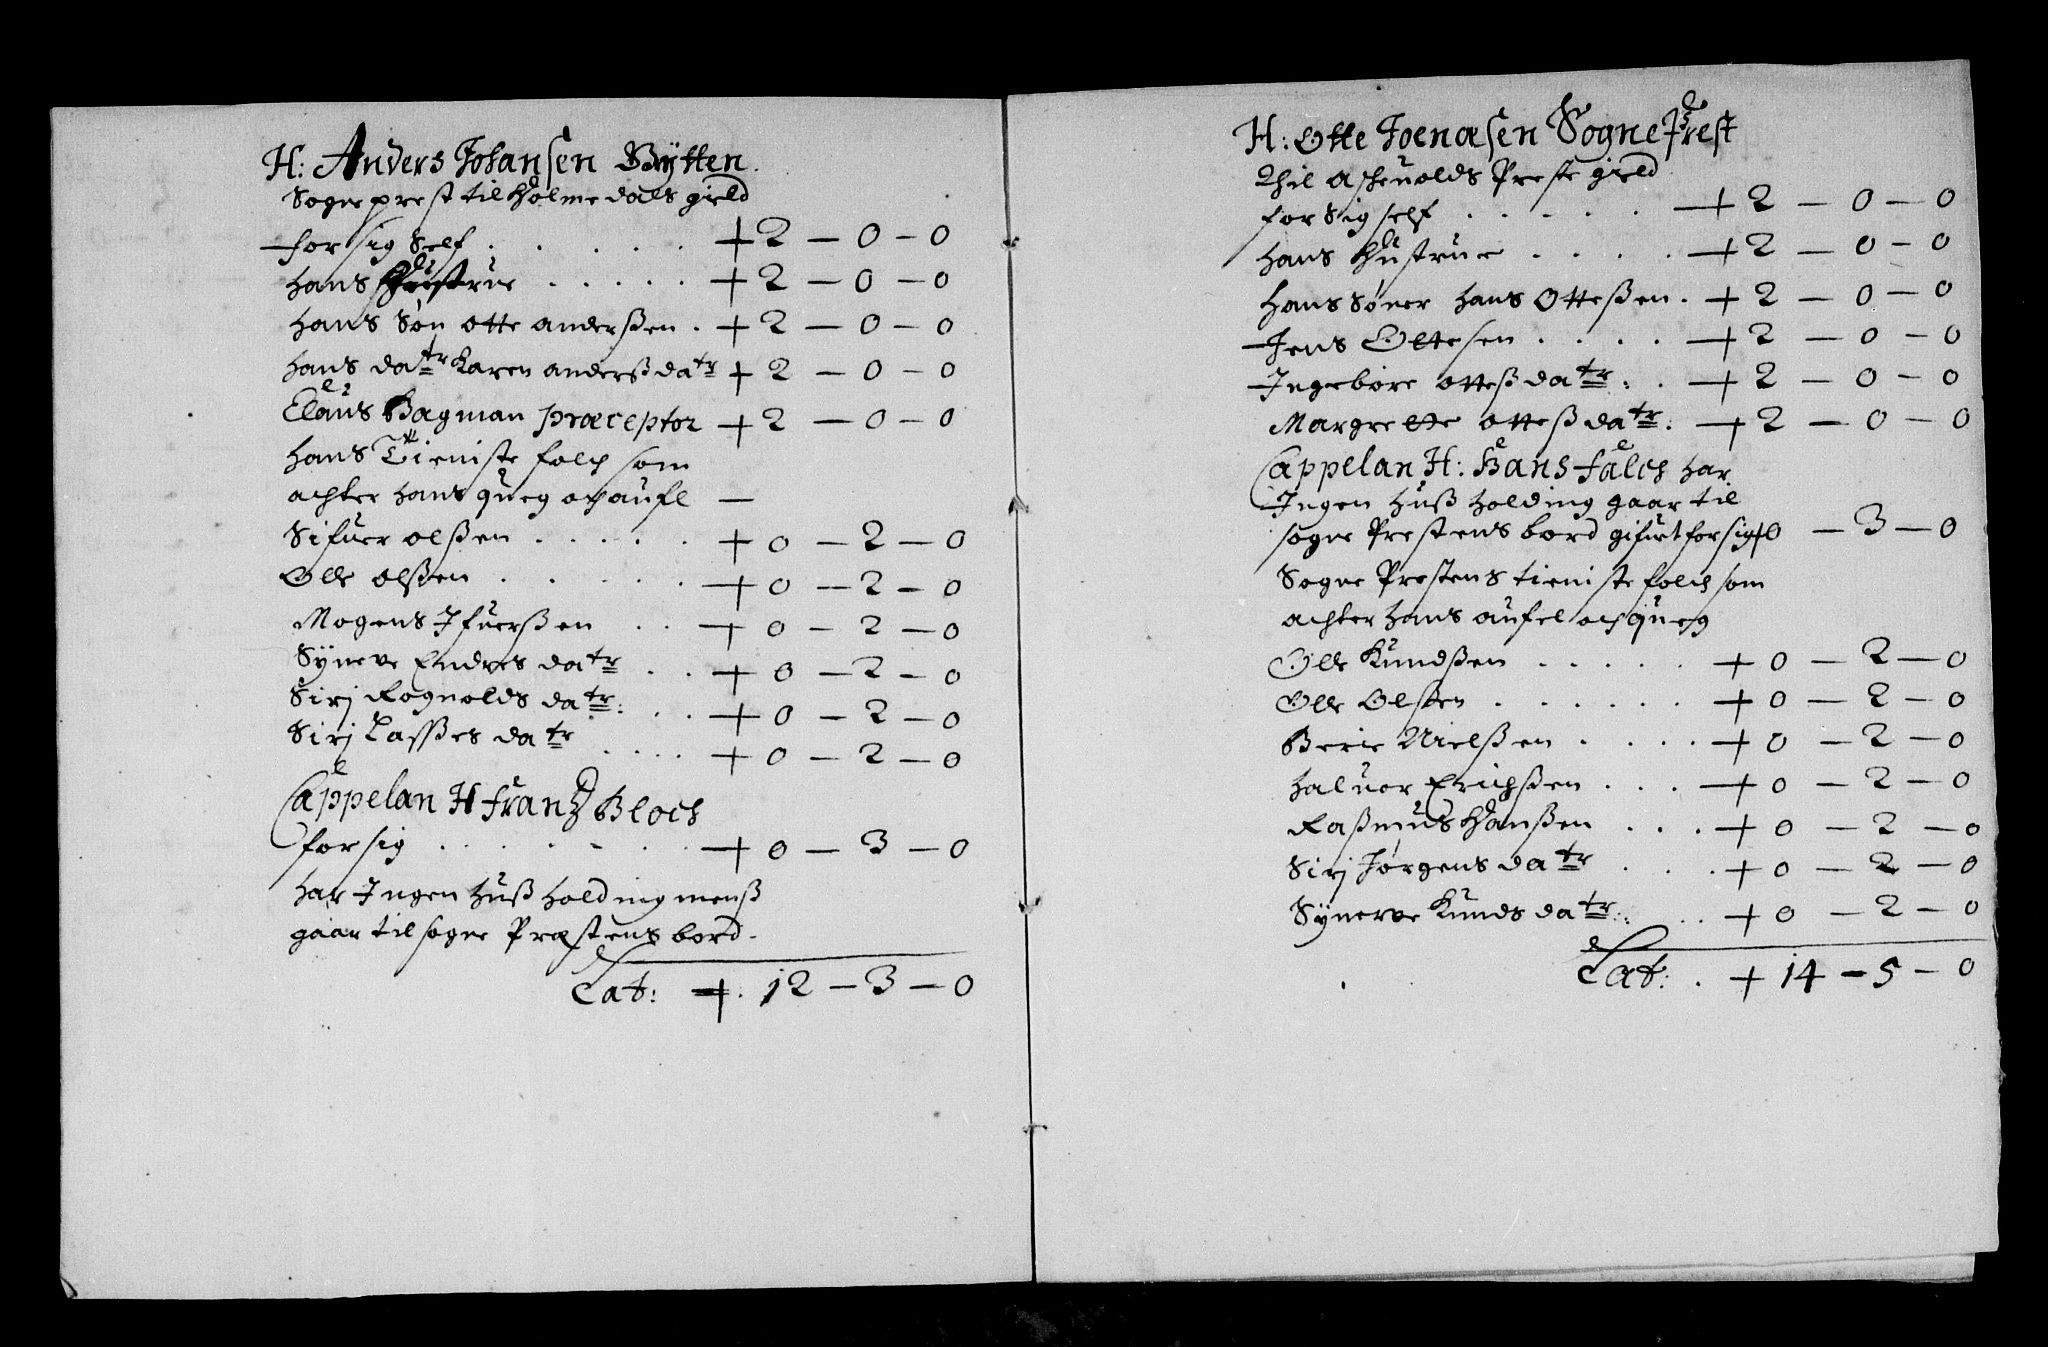 H: Anders Johansen Bÿtten
Sogne prest til Holmedals gield
for sig Self . . . . . + 2 — 0 — 0
hans Hustrue . . . . . + 2 — 0 — 0
hans Søn otte anderßen . + 2 — 0 — 0
hans datr Karen anderßdatr + 2 — 0 — 0
Claus Bagman præceptor + 2 — 0 — 0
hans Tieniste folch som
achter hans queg och aufl —
Sifuer olßen . . . . . + 0 — 2 — 0
Olle olßen . . . . . + 0 — 2 — 0
Mogens Ifuerßen . . + 0 — 2 — 0
Sÿneve Endres datr . . + 0 — 2 — 0
Sirj Rognolds datr: . . + 0 — 2 — 0
Sirj Laſſes datr . . . . + 0 — 2 — 0
Cappelan H Frantz Bloch
for sig . . . . . . + 0 — 3 — 0
har Ingen hußholding menß
gaar til sogne Præstens bord.
Lat: +. 12 — 3 — 0
H: Otte Joenæsen Sogne Prest
Thil Aschuolds Preste gield
for Sig self . . . . . + 2 — 0 — 0
hans Hustrue . . . . + 2 — 0 — 0
hans Søner hans Otteßen . + 2 — 0 — 0
Jens Ottesen . . . . + 2 — 0 — 0
Ingebore otteßdatr: . + 2 — 0 — 0
Margrette otteßdatr: + 2 — 0 — 0
Cappelan H: Hans Falch har
Ingen huß holding gaar til
sogne Prestens bord gifuet for sig + 0 — 3 — 0
Sogne Prestens tieniste folch som
achter hans aufel och queg
Olle Knudßen . . . . . + 0 — 2 — 0
Olle Olßen . . . . . . + 0 — 2 — 0
Berie Nielßen . . . . + 0 — 2 — 0
Haluor Erichßen . . . + 0 — 2 — 0
Raßmus Hanßen . . . + 0 — 2 — 0
Sirj Jørgens datr . . . + 0 — 2 — 0
Sÿnerve Knuds datr: . . + 0 — 2 — 0
Lat: . + 14 — 5 — 0